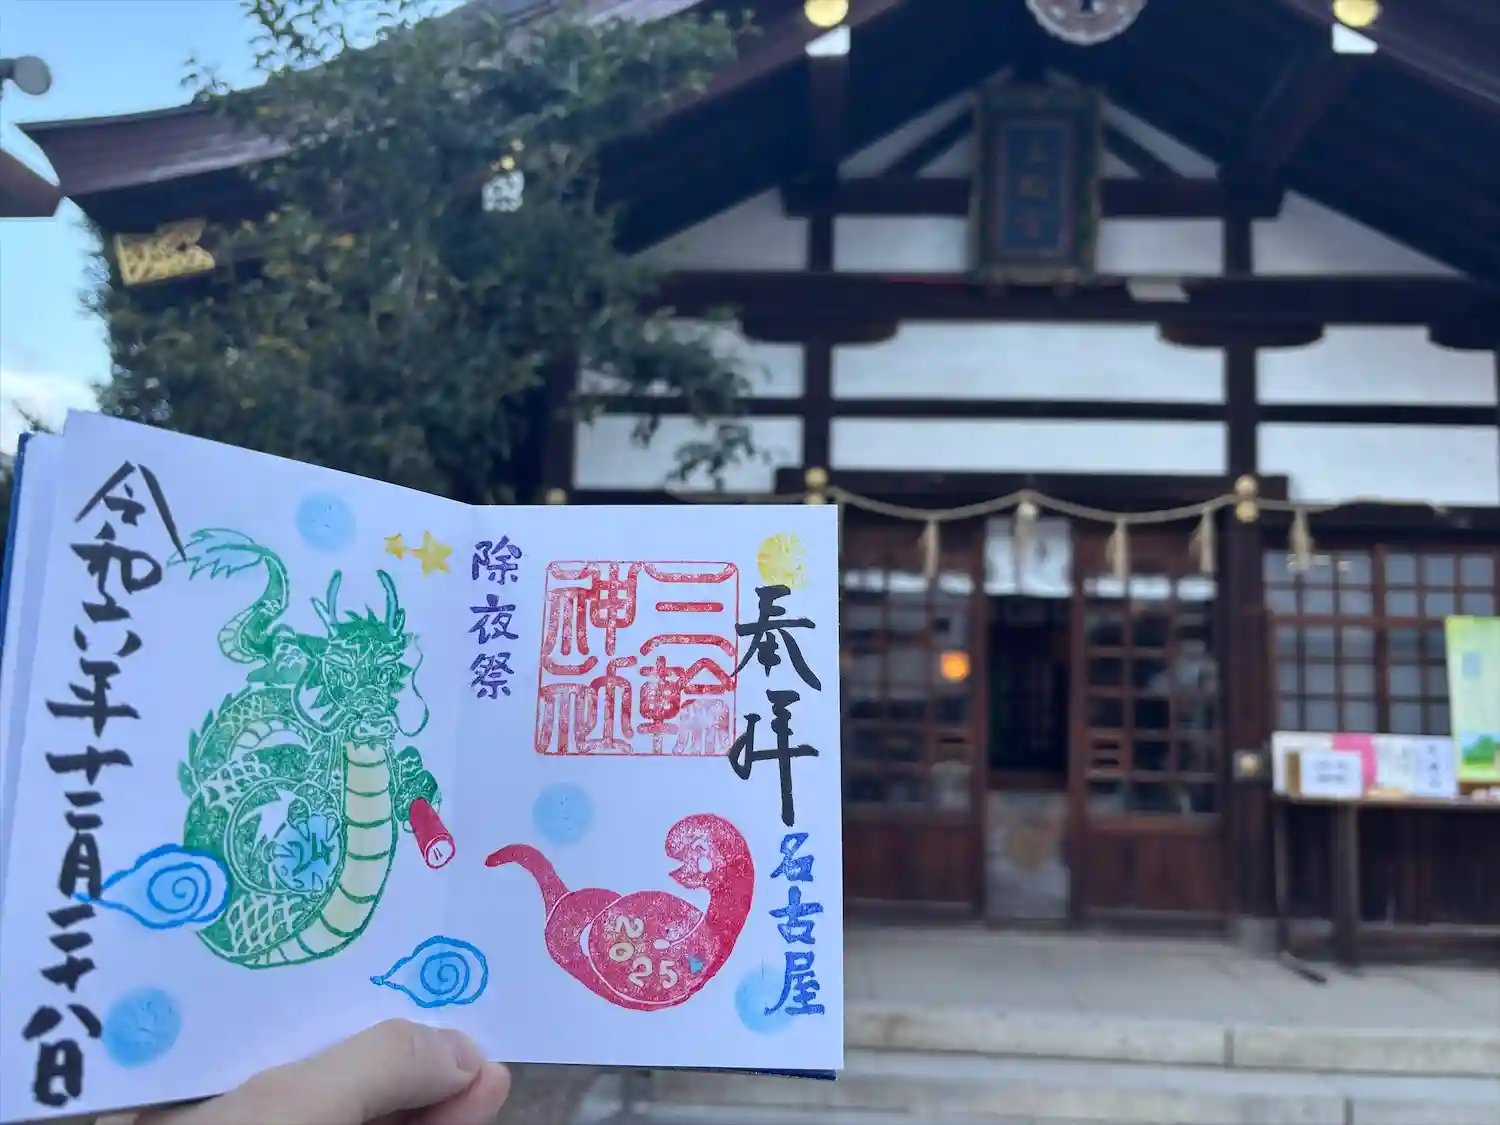 奉拝
名古屋
三輪
神社
除夜祭
2025
令和六年十二月二十八日